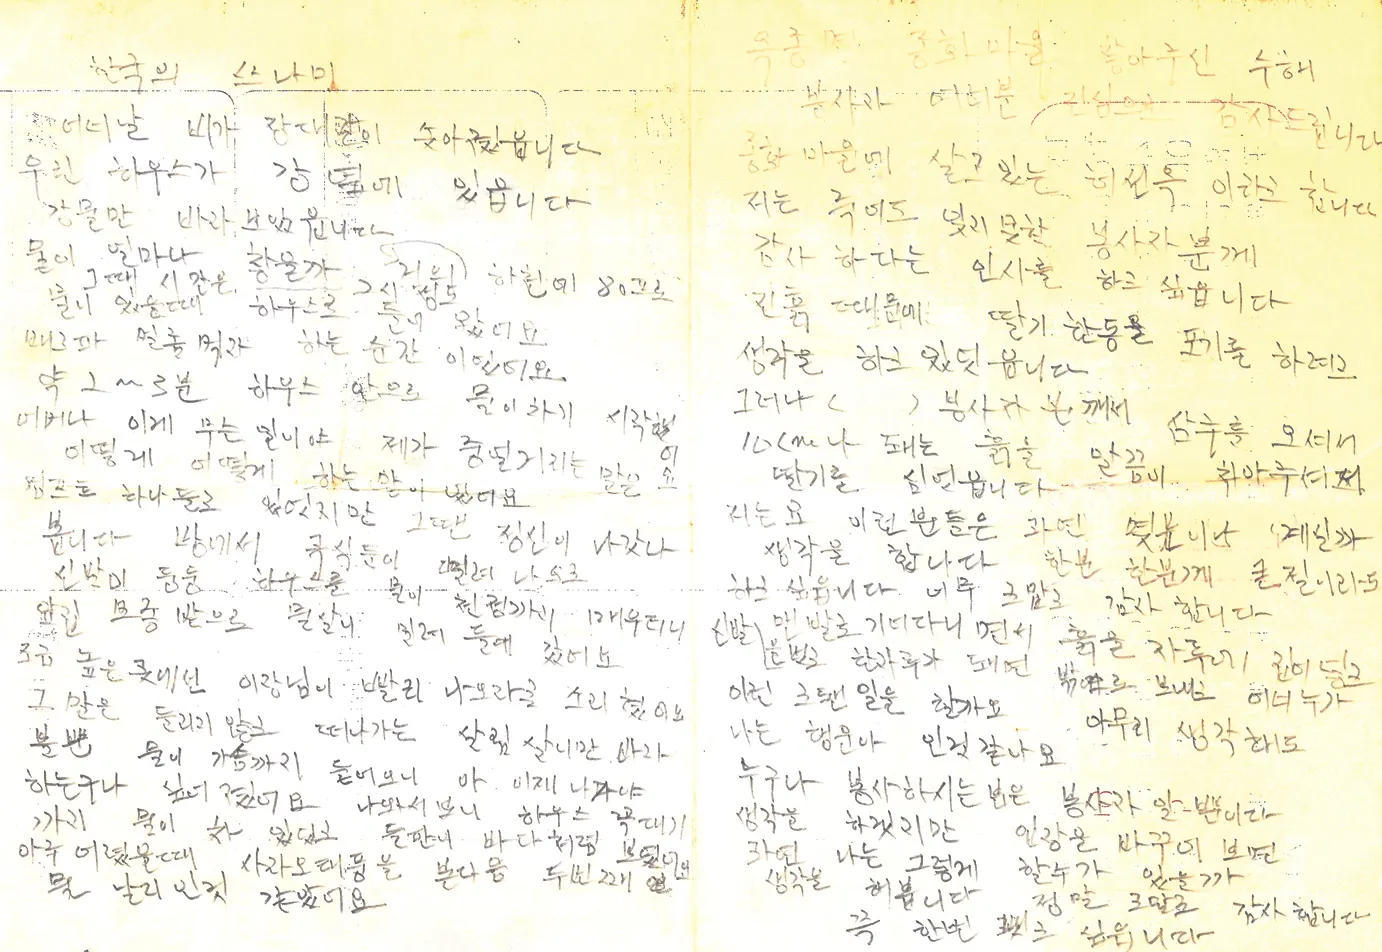 한국의 쓰나미
어너날 비가 장대같이 숫아젔읍니다
우린 하우스가 강 뚝에 있읍니다
강물만 바라보았읍니다
물이 얼마나 황울가 거의 하천에 80프로
그때 시간은 2시 정도
물이 있을때 하우스로 들어 왔어요
빼르파 멀출 먹자 하는 순간 이었어요
약 2~3분 하우스 안으로 물이 하기 시작했어요
어머나 이게 무는 일이야 제가 중떨거리는 말은
어떻게 어떻게 하는 말이 였어요
펌프도 하나 둘로 있엇지만 그땐 정신이 나갔나
봅니다 방에서 국식들이 떠밀려 나오고
신발이 둥둥 하우스를 물이 천정까지 채우더니
옆집 모종 밭으로 물살이 밀려 들에 갔어요
조금 높은 곳에선 이장님이 빨리 나오라고 소리 했어요
그 말은 들리지 않고 떠나가는 살림 살이만 바라
볼뿐 물이 가슴까지 들어오니 아 이제 나가야
하는구나 싶어 졌어요 나와서 보니 하우스 꼭대기
까지 물이 차 있었고 들판이 바다처럼 보였어요
아주 어렸을때 사라오태풍을 본다음 두번째 인
물 날리 인것 같았어요
옥종면 중화마을 찾아주신 수해
봉사자 여러분 진심으로 감사드립니다
중화 마을에 살고있는 허선옥 이라고 합니다
저는 죽어도 잊지못할 봉사자 분께
감사 하다는 인사를 하고 싶읍니다
진흙 때문에 딸기 한동을 포기를 하려고
생각을 하고 있덧읍니다
그러나 ( ) 봉사자 분께서 삼푸를 오셔서
10cm나 돼는 흙을 말끔이 취아주셔서
딸기를 심언읍니다
저는요 이런분들은 과연 몇분이나 계실까
생각을 합니다 한분 한분께 큰절이라도
하고 싶읍니다 너무 고맙고 감사 합니다
신발 맨발로 기어다니면서 흙을 자루에 집어넣고
들고 한자루가 돼면 밖으로 보내고 어너누가
이런 고된 일을 할까요
나는 행운아 인것 같나요 아무리 생각해도
누구나 봉사하시는 분은 봉사자 일뿐니다
생각을 하겠지만 입장을 바꾸어 보면
과연 나는 그렇게 할수가 있을까
생각을 해봅니다 정말 고맙고 감사합니다
꼭 한번 뵙고 싶읍니다